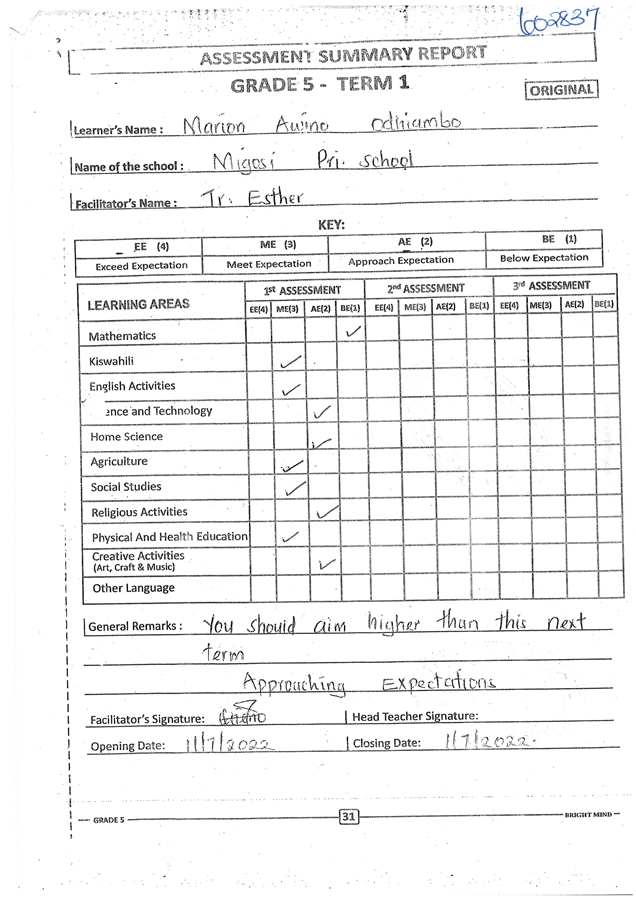 602837
ASSESSMENT SUMMARY REPORT
GRADE 5 - TERM 1
ORIGINAL
Learner's Name : Marion Awino Odhiambo
Name of the school : Migosi Pri. school
Facilitator's Name : Tr. Esther
KEY:
EE (4) ME (3) AE (2) BE (1)
Exceed Expectation Meet Expectation Approach Expectation Below Expectation
LEARNING AREAS 1st ASSESSMENT 2nd ASSESSMENT 3rd ASSESSMENT
EE(4) ME(3) AE(2) BE(1) EE(4) ME(3) AE(2) BE(1) EE(4) ME(3) AE(2) BE(1)
Mathematics ✓
Kiswahili ✓
English Activities ✓
ence and Technology ✓
Home Science ✓
Agriculture ✓
Social Studies ✓
Religious Activities ✓
Physical And Health Education ✓
Creative Activities ✓
(Art, Craft & Music)
Other Language
General Remarks : You should aim higher than this next
term
Approaching Expectations
Facilitator's Signature: Head Teacher Signature:
Opening Date: 11/7/2022 Closing Date: 1/7/2022.
GRADE 5 31 BRIGHT MIND